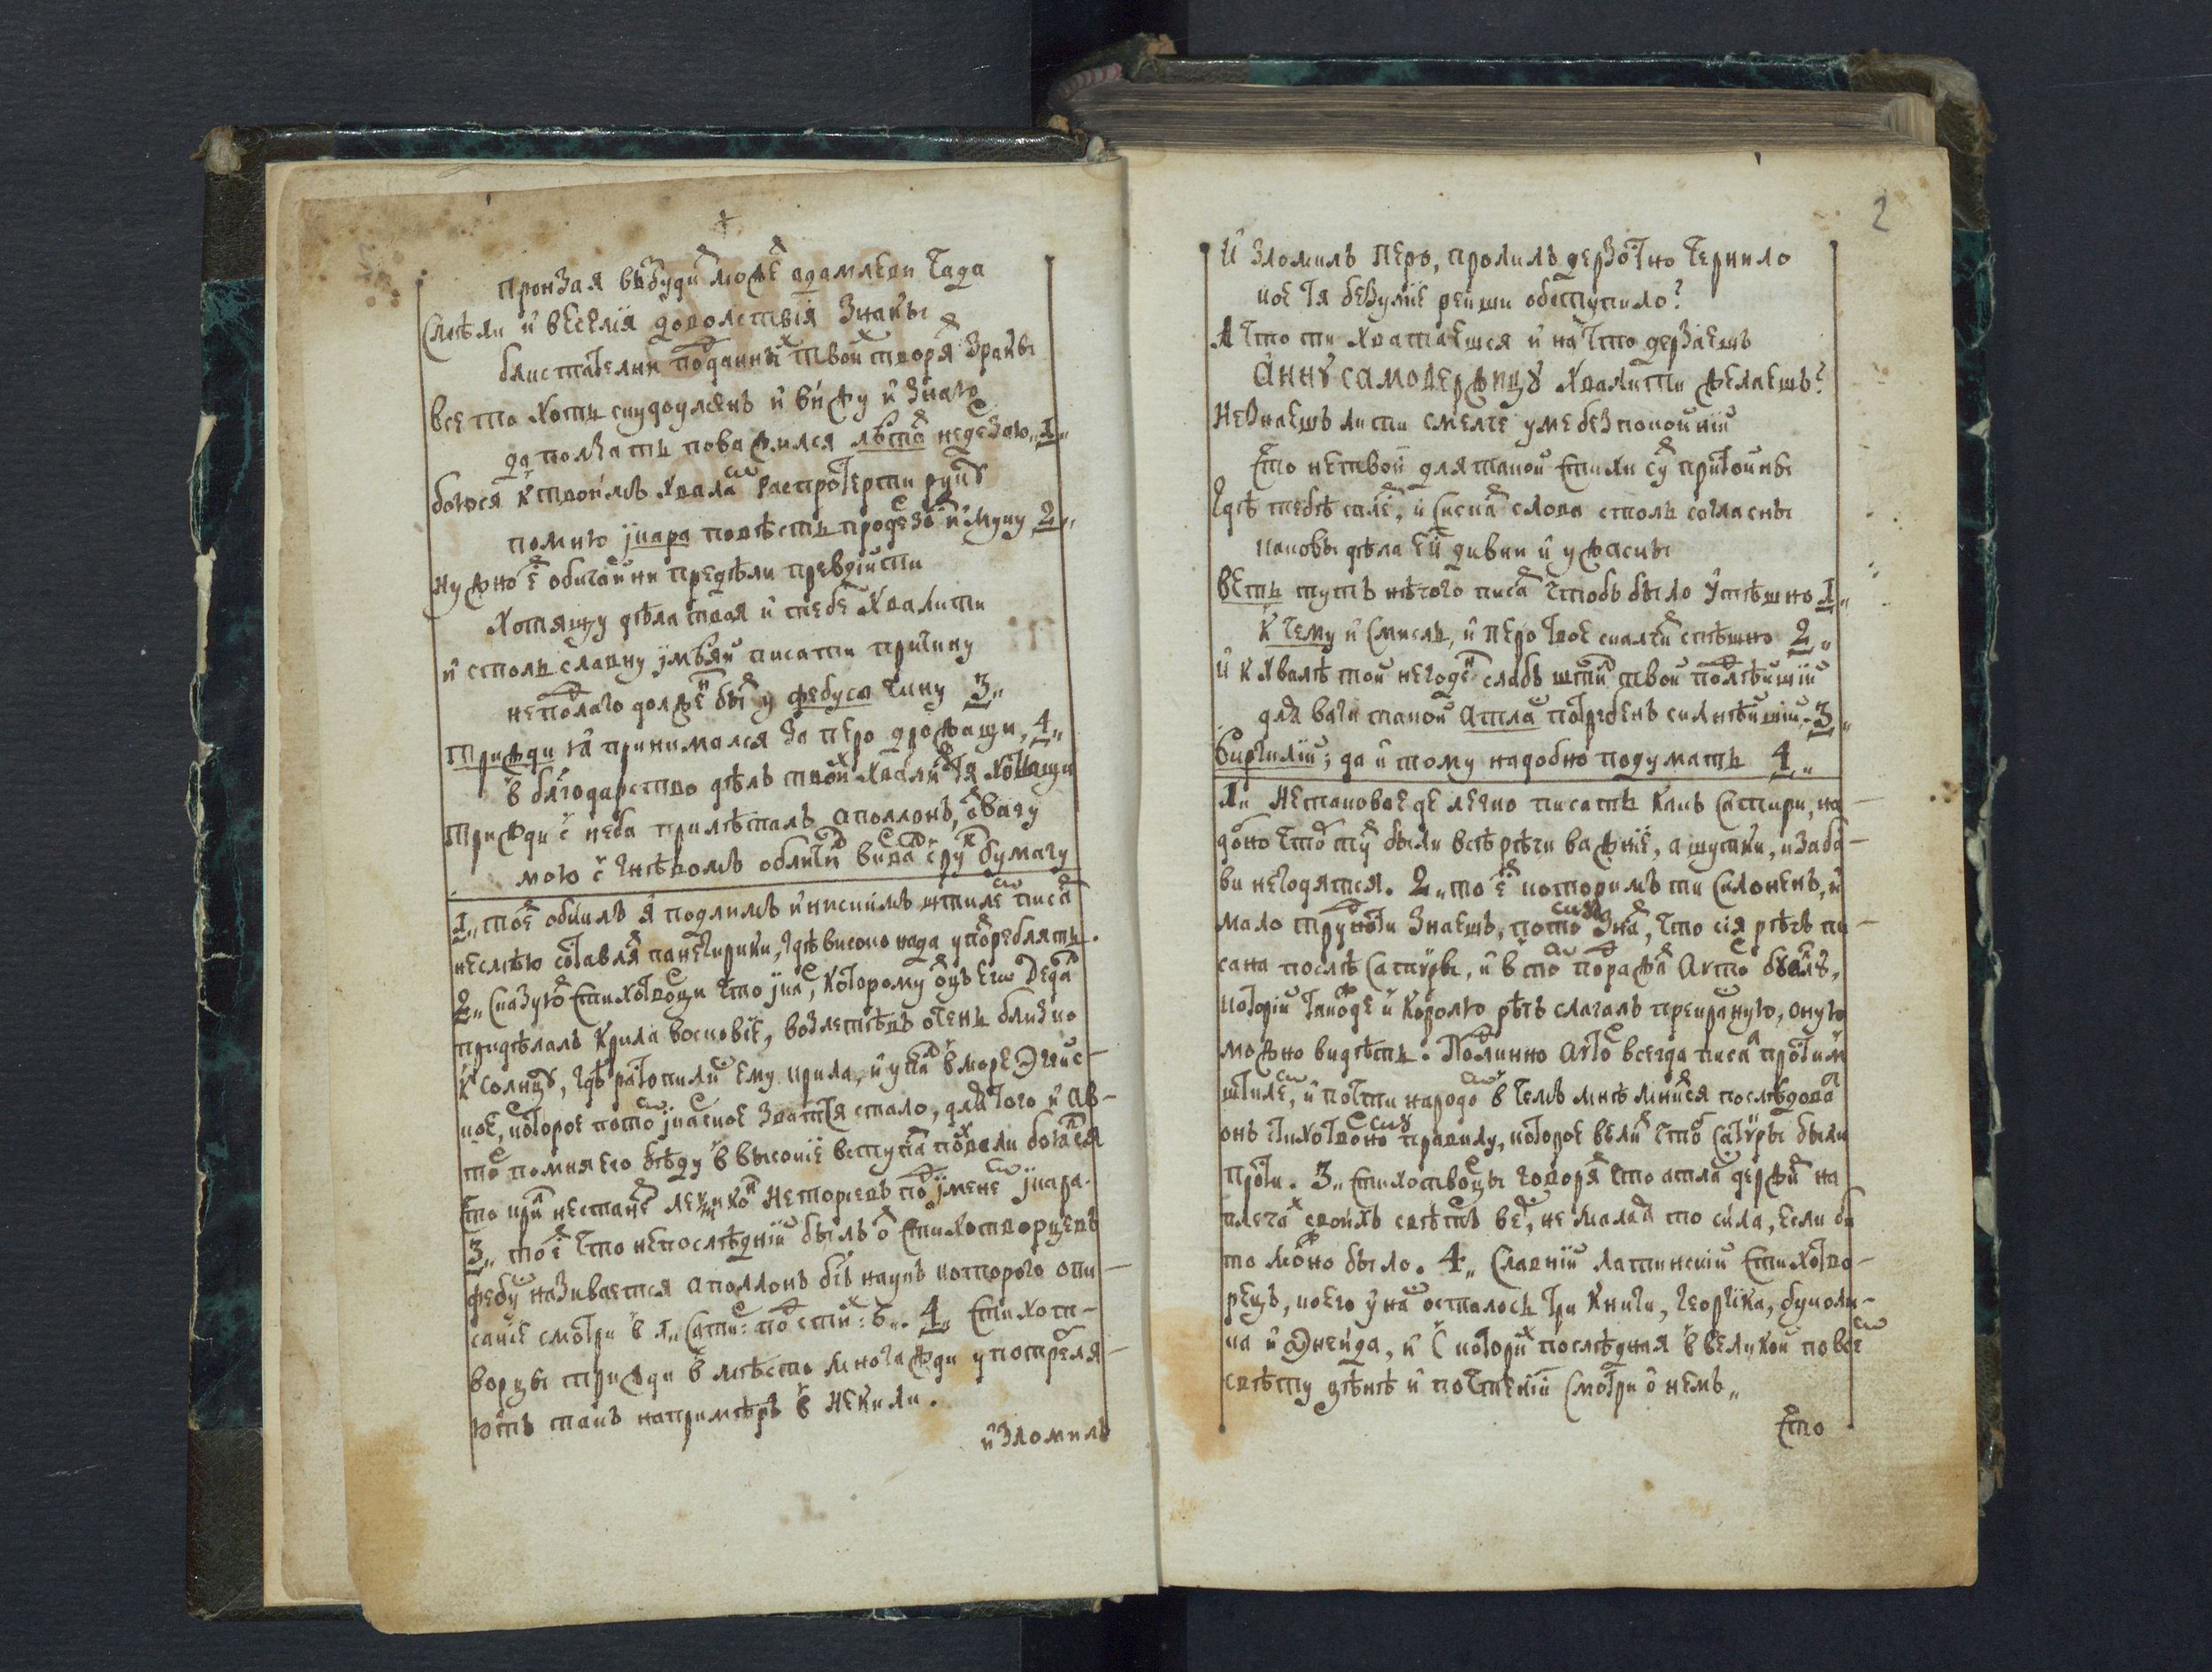 пронзая възбудит людей адамлеви чада
Смѣли и веселия доволствія знаки
блистателни подъданных твоих творят зраки
все то хоть скудоумен и вижу и знаю
да ползать поважился лѣтать недерзаю „1„
боюся к твоимъ хвалам распротерти руку
помню јкара повѣсть продерзость и муку 2„
нужно есть обичайни предѣли превзийти
хотящу дѣла твоя и тебе хвалити
и столь славну имѣяй писати причину
неподлаго должен быть у фебуса чину 3„
Трижди я принимался за перо дрожащи, 4„
в блгодарство дѣлъ твоих хвалить тя хотящи
Трижди с неба прилѣталъ аполлонъ, отвагу
мою с гнѣвомъ обличив видрал с рук бумагу
1„ тое обыклъ я подлимъ и нискимъ штилем писать
несмѣю составлять панегирики, гдѣ високо нада употреблять.
2„ Сказуют Стихотворци что јкар, которому оцъ его Дедал
придѣлалъ крила восковіе, возлетѣвъ очень близко
К солнцу, гдѣ ратопилис ему крила, и упал в море Эгис-
кое, которое потом јкарское зватся стало, для того и ав-
тор помня его бѣду в высокіе вступать похвали боится
Сто крат нестанет лексикон Историевъ под јменем јкара.
3„ то есть что непослѣдній былъ от стихотворцевъ
фебус називается аполлонъ бгъ наукъ которого опи-
саніе смотри в 1„ Сати: под стих: 6„. 4„ Стихотт-
ворцы трижди в мѣсто многажди употребля-
ютъ такъ напримѣръ в Некили.
изломилъ
2
И зломилъ перо, пролилъ дерзостно чернило
кое тя безуміе рекши обступило?
А что ти хватаешся и на что дерзаешъ
Анну самодержицу хвалити желаешъ?
Незнаешъ ли ти смелче уме безпокойній
Сто нетвой для такой стихи суть пристойны
Гдѣ тебѣ сплесть, и сискать слова столь согласны
каковы дѣла Ей дивни и ужасны
Веть тутъ нѣчого писать чтобъ было утѣшно 1„
К чему и смислъ, и перо твое скалить спѣшно 2„
и к хвалѣ той негоден слабъ штиль твой подлѣйшій
для ваги такой Атлас потребенъ силнѣйшій. 3„
Виргилій; да и тому надобно подумать 4„
1„ Нетаковое де легко писать какъ сатири, на-
добно чтоб тут были всѣ рѣчи важніе, а шутки, и заба-
ви негодятся. 2„ то есть которимъ ти склоненъ, и
мало трудности знаешъ, потом знать, что сія рѣчъ пи-
сана послѣ сатиры, и в том подражал Автор боалу,
которій такожде и королю рѣчъ слагалъ прекрасную, оную
можно видѣть. Подлинно Автор всегда писал простим
штилем, и почти народом в чемъ мнѣ мнится послѣдовал
онъ стихотворному правилу, которое велит чтоб сатиры были
прости. 3„ Стихотворцы говорят что атлас держит на
плечах своихъ свѣтъ весь, не малая то сила, если бы
то можно было. 4„ Славній латинскій стихотво-
рецъ, коего у нас осталось три книги, георгика, буколи-
ка и Энеида, и с которих послѣдная в великой по всем
свѣту цѣнѣ и почтеніи смотри о немъ„
Сто